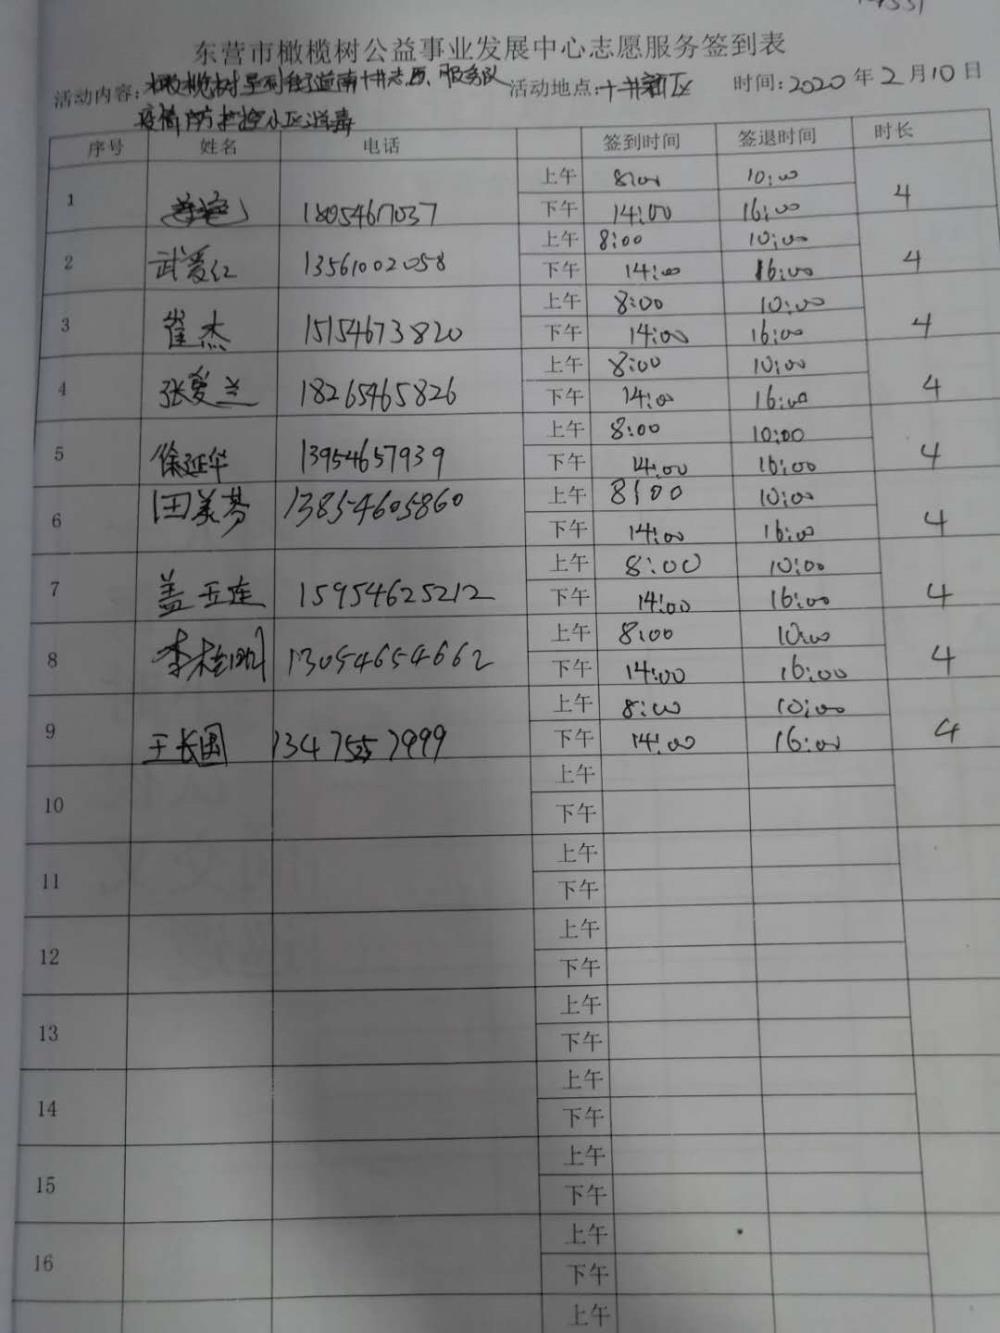 东营市橄榄树公益事业发展中心志愿服务签到表
活动内容: 橄榄树 街道南十井志愿服务队 活动地点: 十井新区 时间: 2020年2月10日
疫情防控小区消毒
序号 姓名 电话 签到时间 签退时间 时长
1 18054617037 上午 8:00 10:00 4
下午 14:00 16:00
2 武爱红 13561002058 上午 8:00 10:00 4
下午 14:00 16:00
3 崔杰 15154673820 上午 8:00 10:00 4
下午 14:00 16:00
4 张爱兰 18265465826 上午 8:00 10:00 4
下午 14:00 16:00
5 徐延华 13954657939 上午 8:00 10:00 4
下午 14:00 16:00
6 田美芬 13854605860 上午 8:00 10:00 4
下午 14:00 16:00
7 盖玉莲 15954625212 上午 8:00 10:00 4
下午 14:00 16:00
8 李桂明 13054654662 上午 8:00 10:00 4
下午 14:00 16:00
9 王长国 13475557999 上午 8:00 10:00 4
下午 14:00 16:00
10 上午
下午
11 上午
下午
12 上午
下午
13 上午
下午
14 上午
下午
15 上午
下午
16 上午
下午
上午